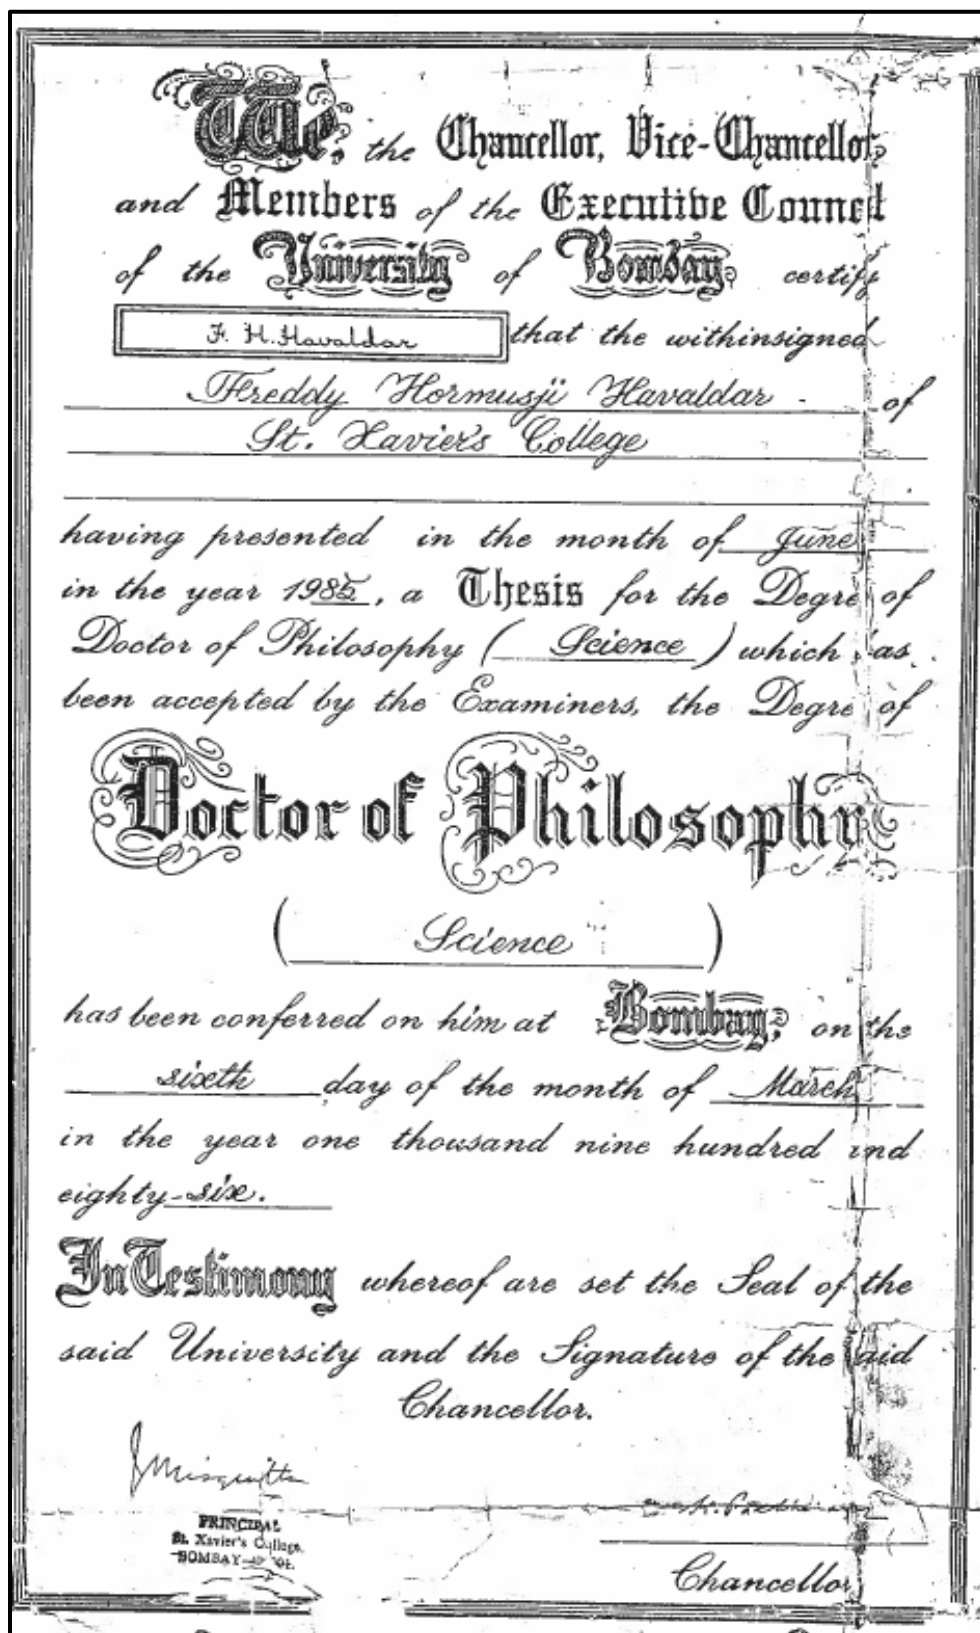 We, the Chancellor, Vice-Chancellor,
and Members of the Executive Council
of the University of Bombay, certify
F. H. Havaldar that the withinsigned
Freddy Hormusji Havaldar of
St. Xavier's College
having presented in the month of June
in the year 1985, a Thesis for the Degre of
Doctor of Philosophy (Science) which as
been accepted by the Examiners, the Degre of
Doctor of Philosophy
(Science)
has been conferred on him at Bombay, on the
sixth day of the month of March
in the year one thousand nine hundred and
eighty-six.
In Testimony whereof are set the Seal of the
said University and the Signature of the aid
Chancellor.
PRINCIPAL
St. Xavier's College,
BOMBAY
Chancellor